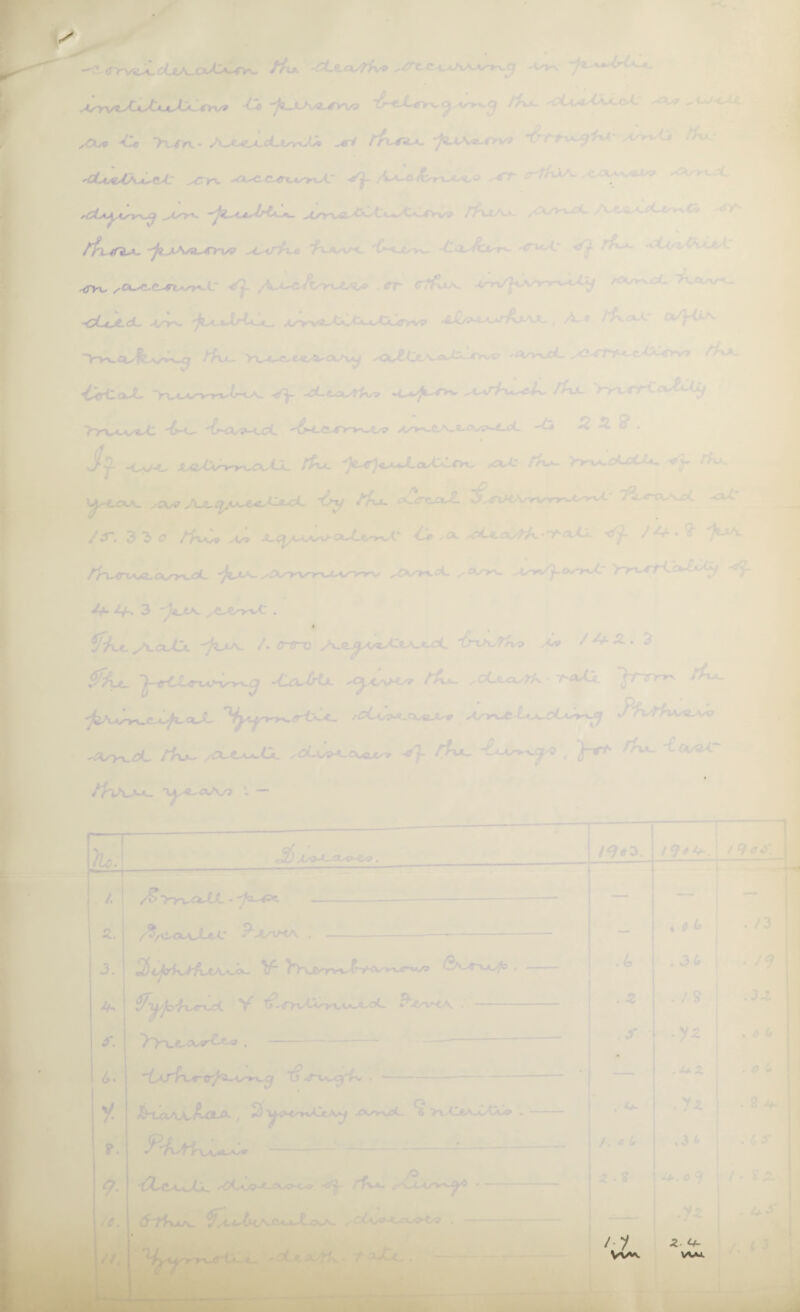 consideration the deaths occurring in public
institutions to persons belonging to the district as well
as to non-residents or those persons brought into the
district on account of sickness or other causes and
dying in public institutions there, and residents or
those persons who have been taken out of the district
on account of sickness or other infirmity and have
died in public institutions elsewhere, so that after
making the necessary alterations and corrections the
total number of deaths upon which the mortality
must be based becomes increased to 228.
If we estimate the population at the middle of the
year as registered by the Local Government Board at
15.330 this is equivalent to a death-rate of 14.8 per
thousand per annum, and an infant mortality of
44.3 per cent.
The rate per 1.000 registered births is 142.3
The following table gives the death-rate from the
principal Zymotic diseases including Phthisis
and the acute diseases of the lungs, for the last
three years : —
No. Diseases. 1903. 1904. 1905.
1. Small-pox — — —
2. Scarlet Fever . — .06 .13
3. Diphtheria & Membranous Croup . .6 .36 .19
4. Typhoid & Continued Fever . .2 .18 .32
5. Measles . .5 .72 .06
6. Whooping Cough . — .42 .06
7. Diarrhœa, Dysentery and Enteritis . .72 .84
8. Phthisis 1.06 .36 .65
9. Acute diseases of the Lungs . 2.8 4.09 1.82
10. Other Tubercular diseases . — .72 .45
11. Zymotic death-rate . 1.7 2.4